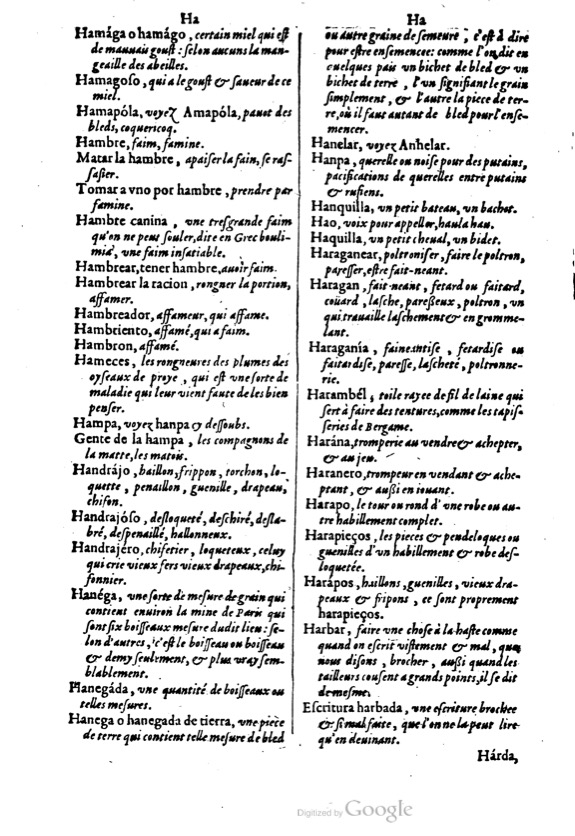 Ha
Hamága o hamágo, certain miel qui eſt
de mauuais gouſt : ſelon aucuns la man-
geaille des abeilles.
Hamagoſo, qui a le gouſt & ſaueur de ce
miel.
Hamapóla, voyez Amapóla, pauot des
bleds, coquericoq.
Hambre, faim, famine.
Matar la hambre, apaiſer la fain, ſe raſ-
ſaſier.
Tomar a vno por hambre, prendre par
famine.
Hambre canina, vne treſgrande faim
qu'on ne peut ſouler, dite en Grec bouli-
mia, vne faim inſatiable.
Hambrear, tener hambre, auoir faim.
Hambrear la racion, rongner la portion,
affamer.
Hambreador, affameur, qui affame.
Hambriento, affamé, qui a faim.
Hambron, affamé.
Hameces, les rongneures des plumes des
oyſeaux de proye, qui eſt vne ſorte de
maladie qui leur vient faute de les bien
penſer.
Hampa, voyez hanpa & deſſoubs.
Gente de la hampa, les compagnons de
la matte, les matois.
Handrájo, haillon, frippon, torchon, lo-
quette, penaillon, guenille, drapeau,
chifon.
Handrajóſo, deſloqueté, deſchiré, deſla-
bré, deſpenaillé, hallonneux.
Handrajéro, chifetier, loqueteux, celuy
qui crie vieux fers vieux drapeaux, chi-
fonnier.
Hanéga, vne ſorte de meſure de grain qui
contient enuiron la mine de Paris qui
ſont ſix boiſſeaux meſure dudit lieu : ſe-
lon d'autres, c'eſt le boiſſeau ou boiſſeau
& demy ſeulement, & plus vray ſem-
blablement.
Hanegáda, vne quantité de boiſſeaux ou
telles meſures.
Hanega o hanegada de tierra, vne piece
de terre qui contient telle meſure de bled
Ha
ou autre graine de ſemeure, c'eſt à dire
pour eſtre enſemencee: comme l'on dit en
quelques païs vn bichet de bled & vn
bichet de terre, l'vn ſignifiant le grain
ſimplement, & l'autre la piece de ter-
re, où il faut autant de bled pour l'enſe-
mencer.
Hanelar, voyez Anhelar.
Hanpa, querelle ou noiſe pour des putains,
pacifications de querelles entre putains
& rufiens.
Hanquilla, vn petit bateau, vn bachot.
Hao, voix pour appeller, haula hau.
Haquilla, vn petit cheual, vn bidet.
Haraganear, poltroniſer, faire le poltron,
pareſſer, eſtre fait-neant.
Haragan, fait-neant, fetard ou faitard,
coüard, laſche, pareſſeux, poltron, vn
qui trauaille laſchement & en gromme-
lant.
Haragania, faineantiſe, fetardiſe ou
faitardiſe, pareſſe, laſcheté, poltronne-
rie.
Harambél, toile rayee de fil de laine qui
ſert à faire des tentures, comme les tapiſ-
ſeries de Bergame.
Harána, tromperie au vendre & achepter,
& au jeu.
Haranero, trompeur en vendant & ache-
ptant, & auſſi en iouant.
Harapo, le tour ou rond d'vne robe ou au-
tre habillement complet.
Harapieços, les pieces & pendeloques ou
guenilles d'vn habillement & robe deſ-
loquetée.
Harápos, haillons, guenilles, vieux dra-
peaux & fripons, ce ſont proprement
harapieços.
Harbar, faire vne choſe à la haſte comme
quand on eſcrit viſtement & mal, que
nous diſons, brocher, auſſi quand les
tailleurs couſent a grands points, il ſe dit
de meſme.
Eſcritura harbada, vne eſcriture brochee
& ſi mal faite, que l'on ne la peut lire
qu'en deuinant.
Hárda,
Digitized by Google